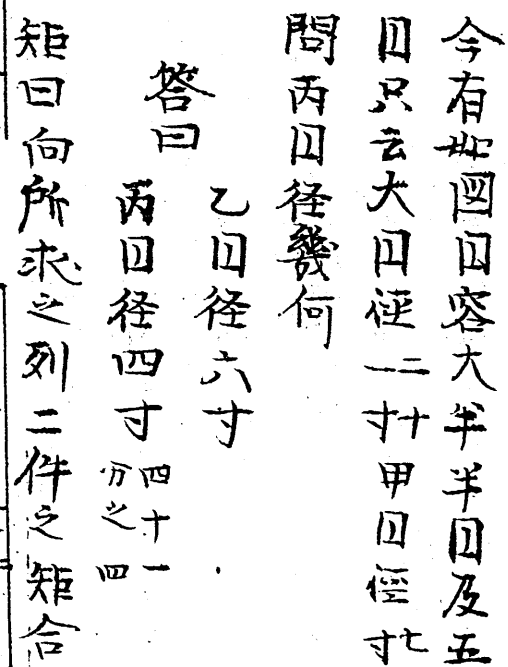 今有如図円容大半半円及五
円只云大円徑二十一寸甲円徑七寸
問丙円径幾何
答曰
乙円径六寸
丙円径四寸四十一分之四
矩曰向所求之列二件之矩合